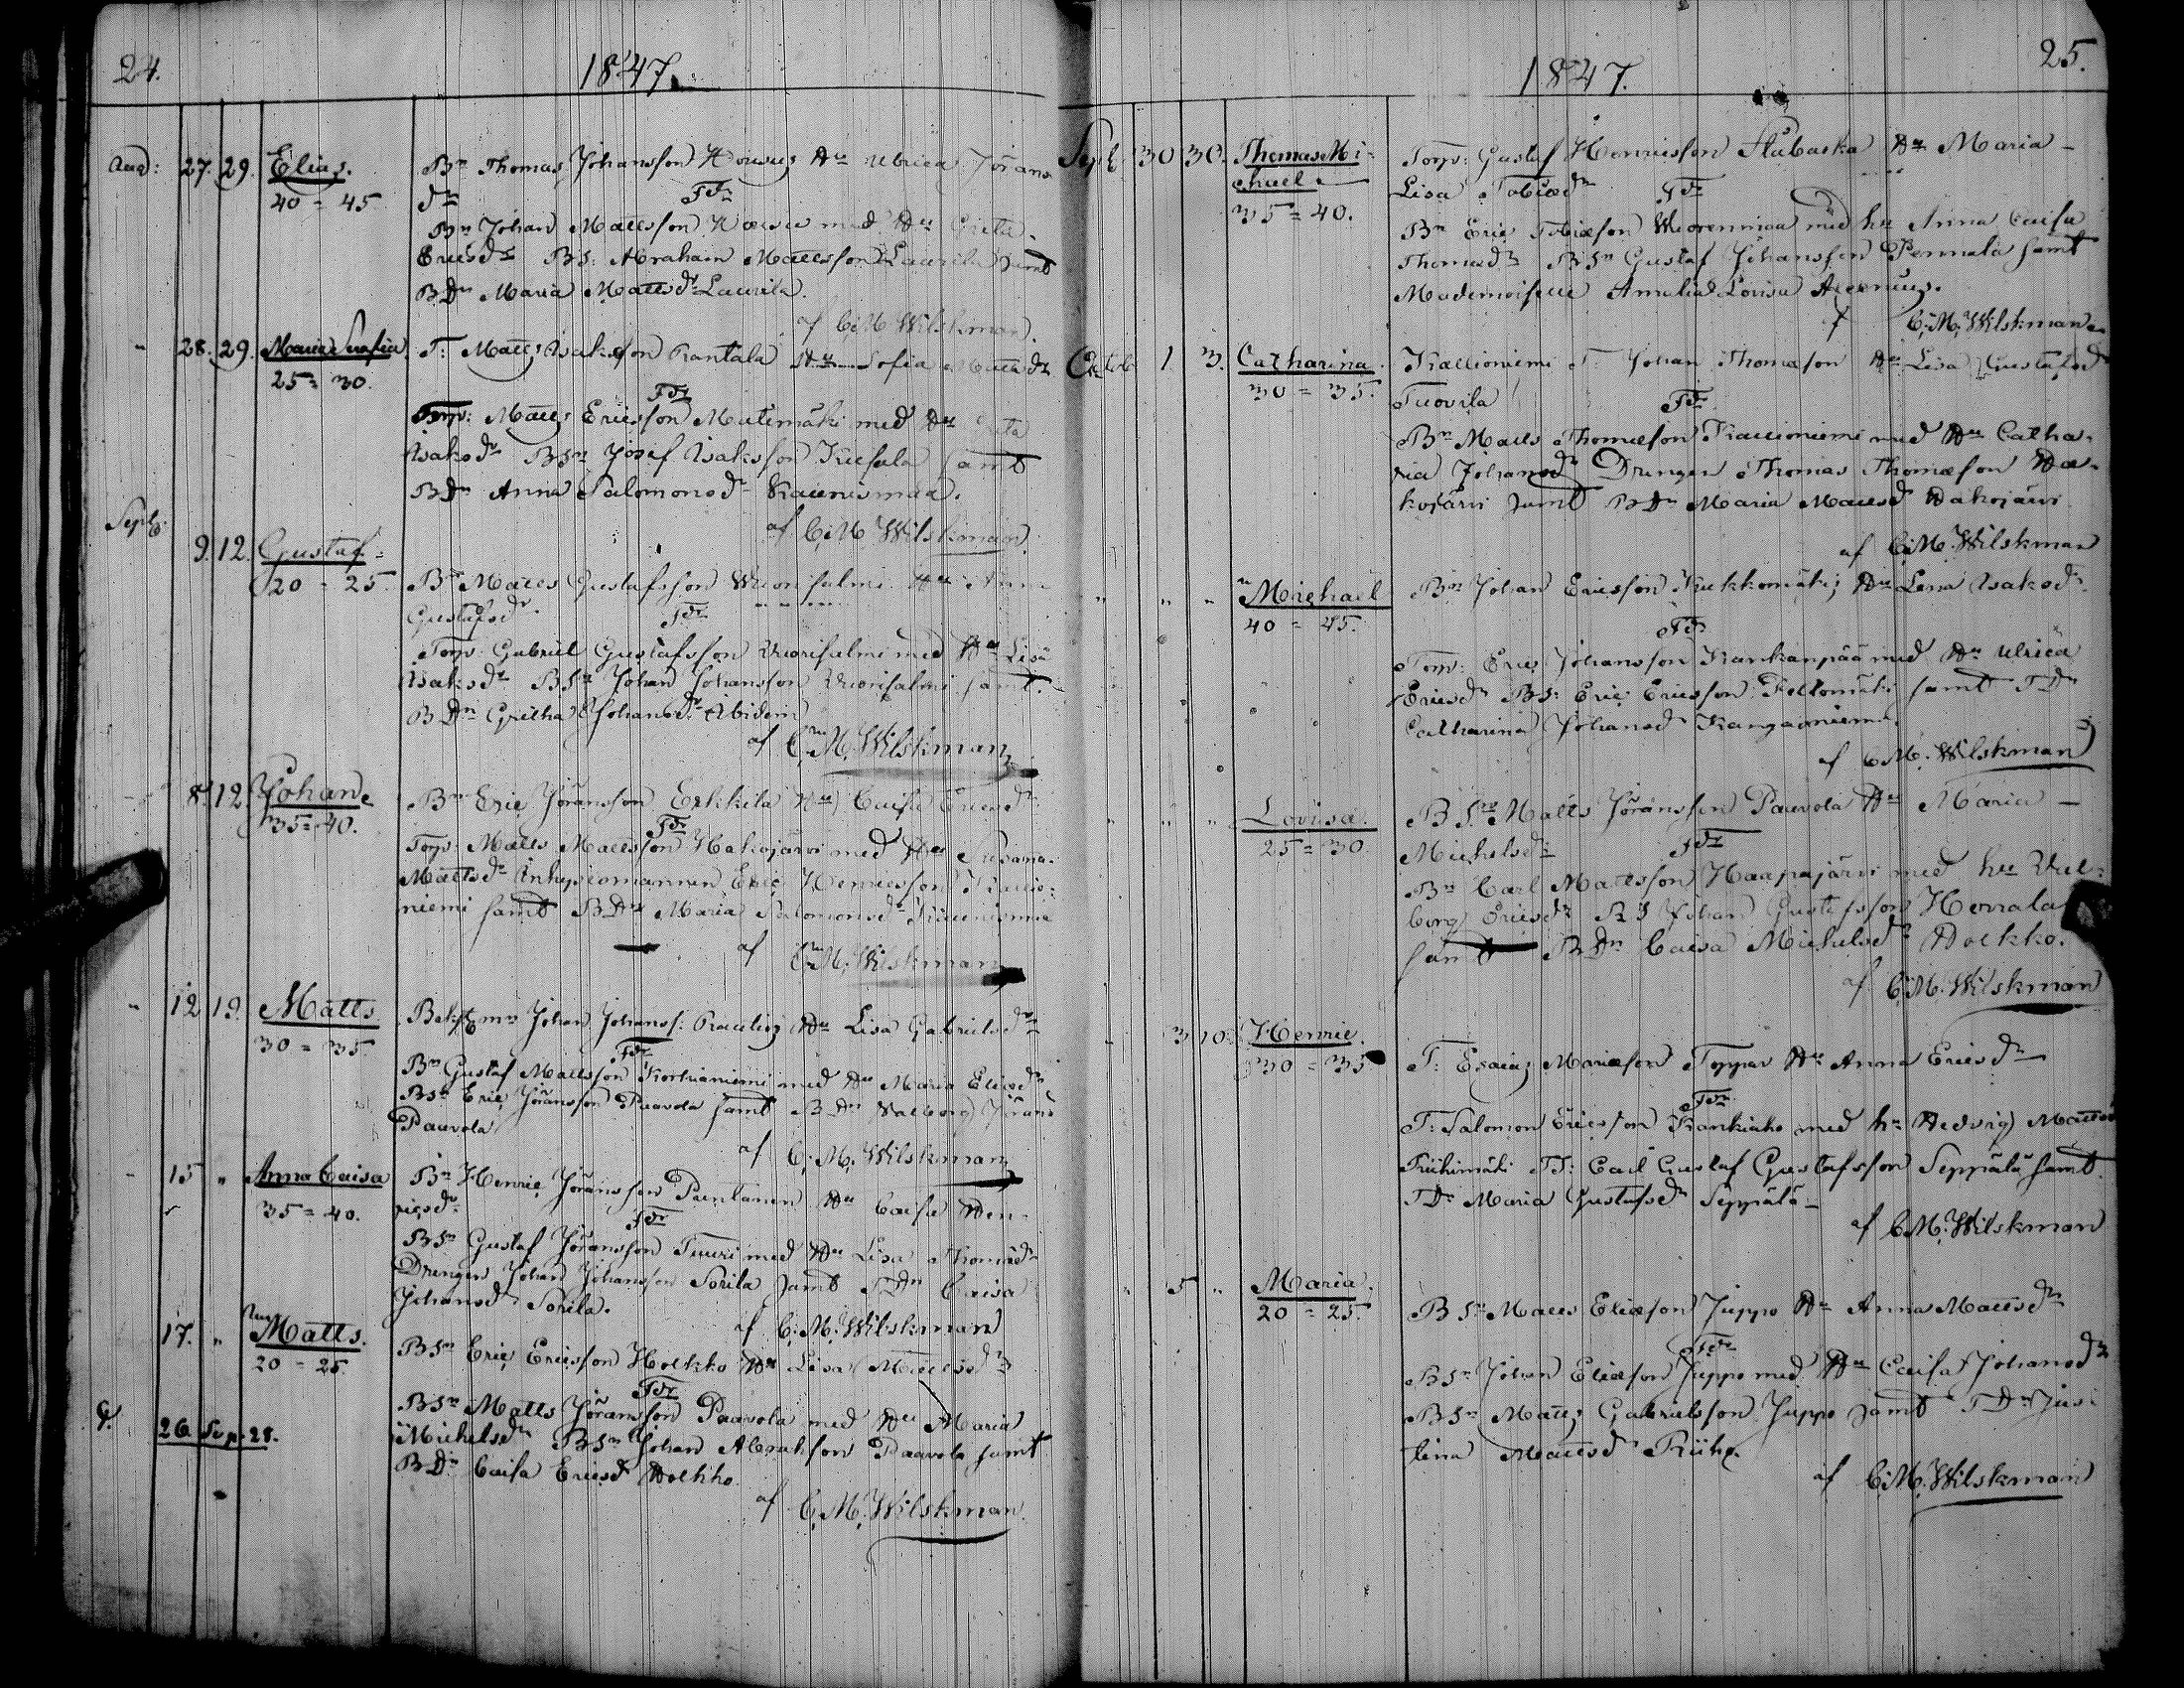 24.
1847.
Aug: 27. 29. Elias.
40 = 45
Bn Thomas Johansson Hu Ulrica Jörans
dr
Fdr
Bn Johan Mattsson med Hu Greta
Ericsdr BS: Abraham Mattsson Laurila samt
BDn Maria Mattsdr Laurila.
af C. M. Wilskman.
" 28. 29. Maria Sofia
25 = 30.
T: Matts Isaksson Rantala Hu Sofia Mattsdr
Fdr
Torp: Matts Ericsson Mutimäki med Hu
Isaksdr BSn Josef Isaksson samt
BDn Anna Salomonsdr Kaunismaa.
af C. M. Wilskman.
Septb:
9. 12. Gustaf
20 = 25
Bn Matts Gustafsson Wuorisalmi Hu
Gustafsdr.
Fdr
Torp: Gabriel Gustafsson Wuorisalmi med Hu Lisa
Isaksdr BSn Johan Johansson Wuorisalmi samt
BDn Gretha Johansdr
af C. M. Wilskman
8. 12. Johan
35 = 40.
Bn Eric Jöransson Erkkila Hu Caisa Ericsdr
Fdr
Torp: Matts Mattsson Hakojärvi med Hu Susanna
Mattsdr Enklingsmannen Eric Henricsson Kallio-
niemi samt BDn Maria Salomonsdr
af C. M. Wilskman
" 12 19. Matts
30 = 35.
Johan Johanss: Hu Lisa Gabrielsdr
Fdr
Bn Gustaf Mattsson Korkianiemi med Hu Maria Eliædr
BSn Eric Jöransson Paavola samt BDn Walborg Jörans
Paavola
af C. M. Wilskman
" 15 " Anna Caisa
35 = 40.
Bn Henric Jöransson Puntanen Hu Caisa Hen-
ricsdr
Fdr
BSn Gustaf Jöransson Tuuri med Hu Lisa Thomædr
Drengen Johan Johansson Sorila samt TDn Caisa
Johansdr Sorila.
af C. M. Wilskman
17. " Matts.
20 = 25
BSn Eric Ericsson Holkko Hu Lisa Mattsdr
Fdr
BSn Matts Jöransson Paavola med Hu Maria
Michelsdr BSn Johan Abrahson Paavola samt
BDn Caisa Ericsdr Holkko.
af C. M. Wilskman
26. Sep. 28.
25.
1847.
Sept 30 30. Thomas Mi-
chael
35 = 40.
Torp: Gustaf Henricsson Hu Maria
Lisa Tobiædr
Fdr
Bn Eric Tobiæson Wuorenmaa med hu Anna Caisa
Thomædr BSn Gustaf Johansson Pennala samt
Mademoiselle Amalia Lovisa
af C. M. Wilskman
Octob 1. 3. Catharina.
30 = 35.
Kallioniemi T. Johan Thomæson Hu Lisa Gustafsdr
Tuovila
Fdr
Bn Matts Thomæson Kallioniemi med Hu Catha-
rina Johansdr Drengen Thomas Thomæson Ha-
kojärvi samt BDn Maria Mattsdr Hakojärvi
af C. M. Wilskman
" " " Michael
40 = 45.
Bn Johan Ericsson Kukkomäki Hu Lena Isaksdr
Fdr
Torp: Eric Johansson Kankanpää med Hu Ulrica
Ericsdr BS: Eric Ericsson Keltomäki samt TDn
Catharina Johansdr Kangasniemi
af C. M. Wilskman
" " " Lovisa.
25 = 30.
BSn Matts Jöransson Paavola Hu Maria
Michelsdr
Fdr
Bn Carl Mattsson Haapajärvi med hu Wal-
borg Ericsdr BS Johan Gustafsson Herrala
samt BDn Caisa Michelsdr Holkko.
af C. M. Wilskman
3 10. Henric.
30 = 35
T: Esaias Mariæson Toppar Hu Anna Ericsdr
Fdr
T: Salomon Ericsson Kankiaho med hu Hedvig Mattsdr
Riihimäki TS: Carl Gustaf Gustafsson Seppälä samt
TDr Maria Gustafsdr Seppälä
af C. M. Wilskman
" 5 " Maria.
20 = 25.
BSn Matts Eliæson Juppo Hu Anna Mattsdr
Fdr
BSn Johan Eliæson Juppo med Hu Caisa Johansdr
BSn Matts Gabrielsson Juppo samt TDn Jus-
tina Mattsdr
af C. M. Wilskman